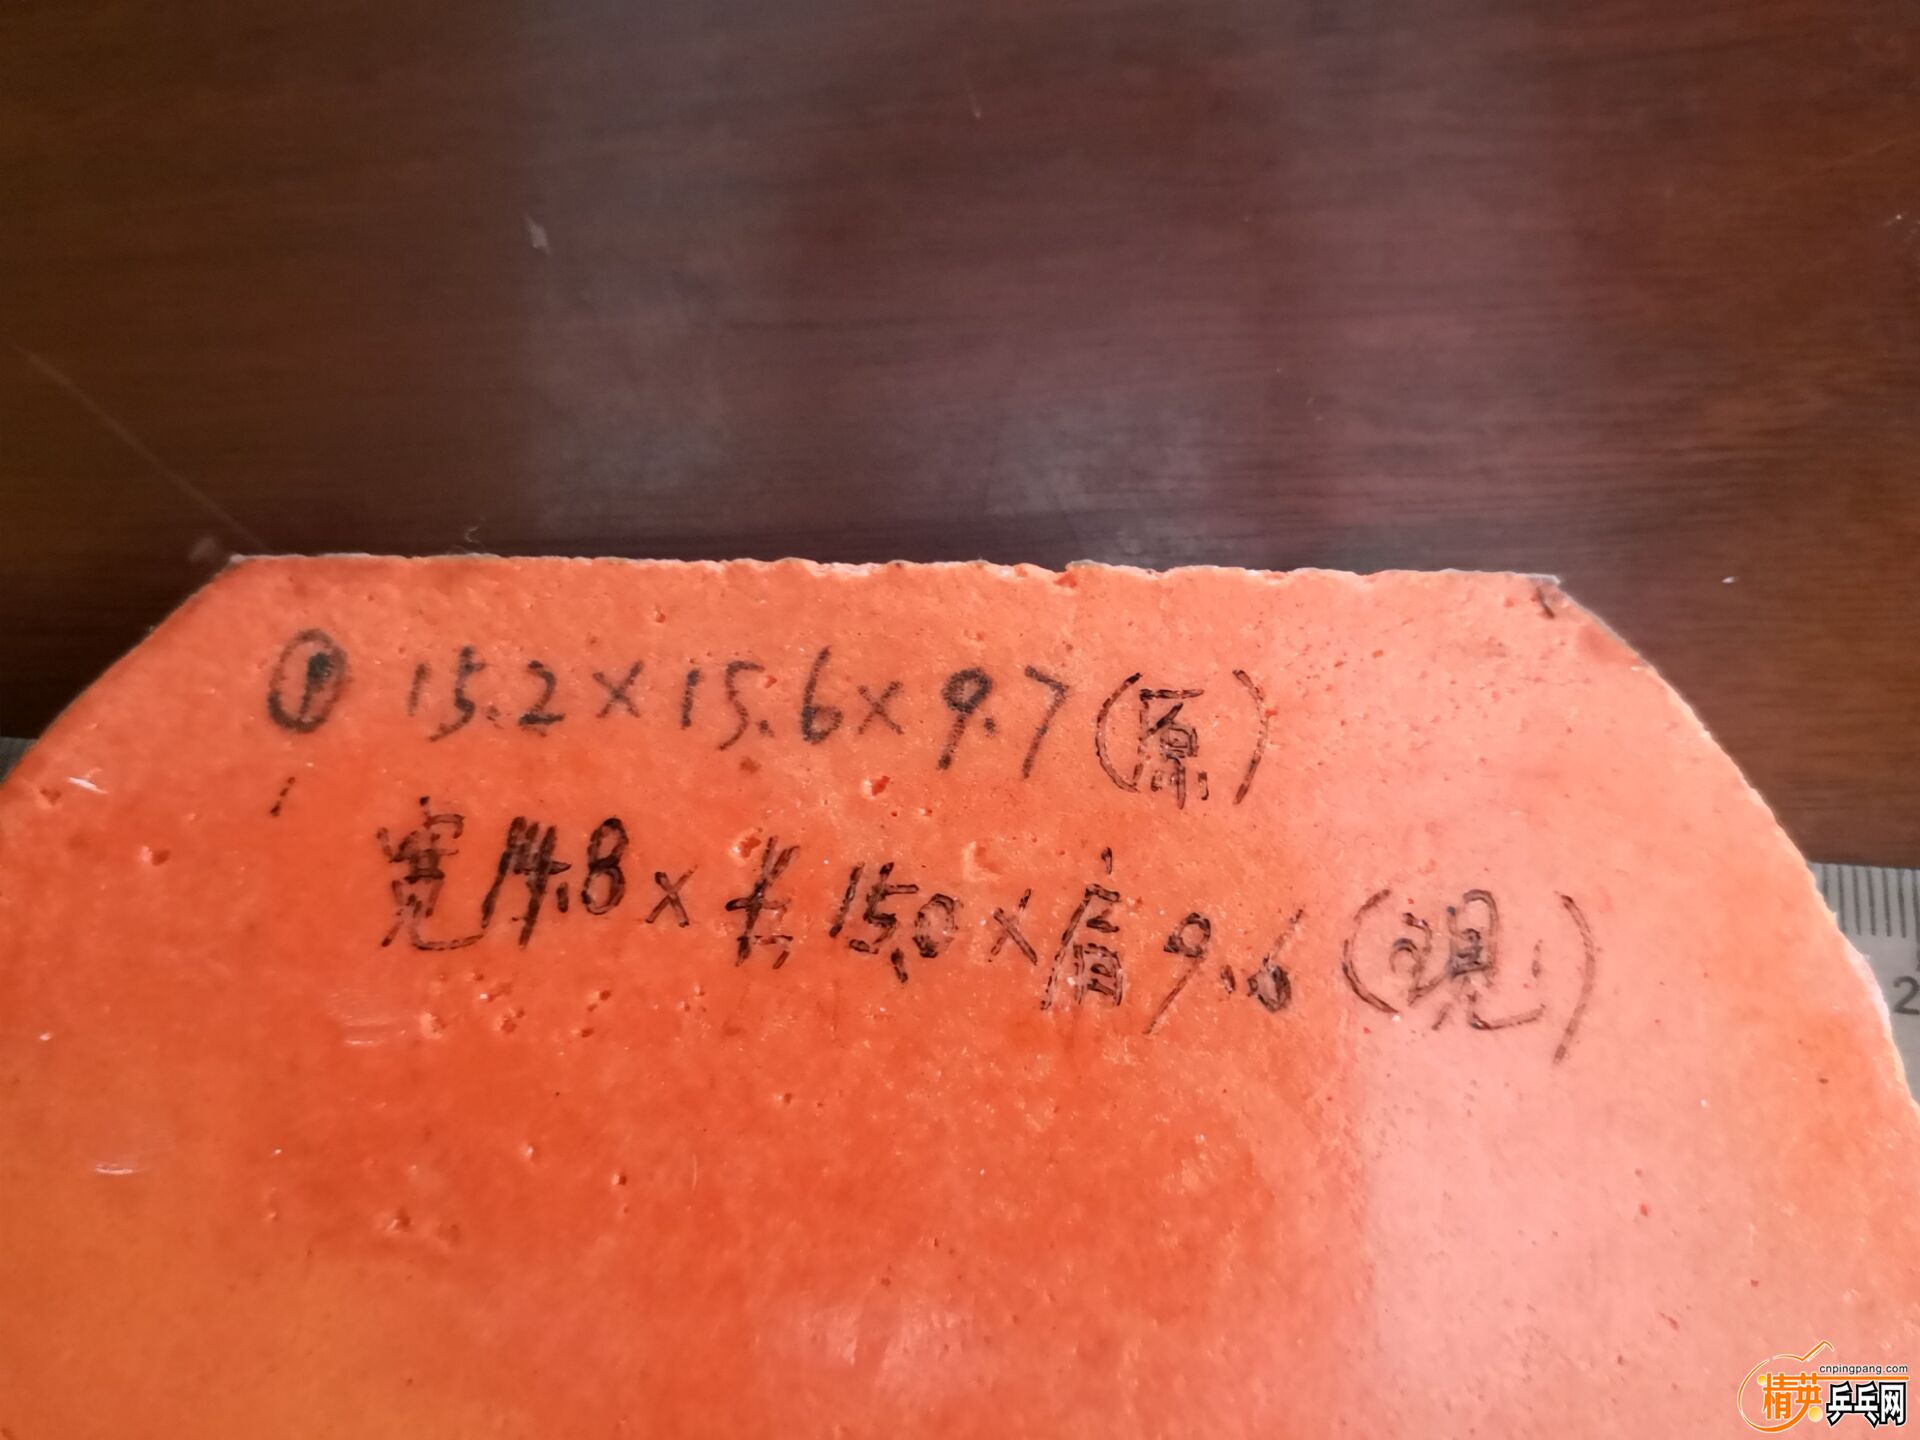 ① 15.2×15.6×9.7(原)
宽14.8×长15.0×肩9.6(現)
2
cnpingpang.com
精英乒乓网